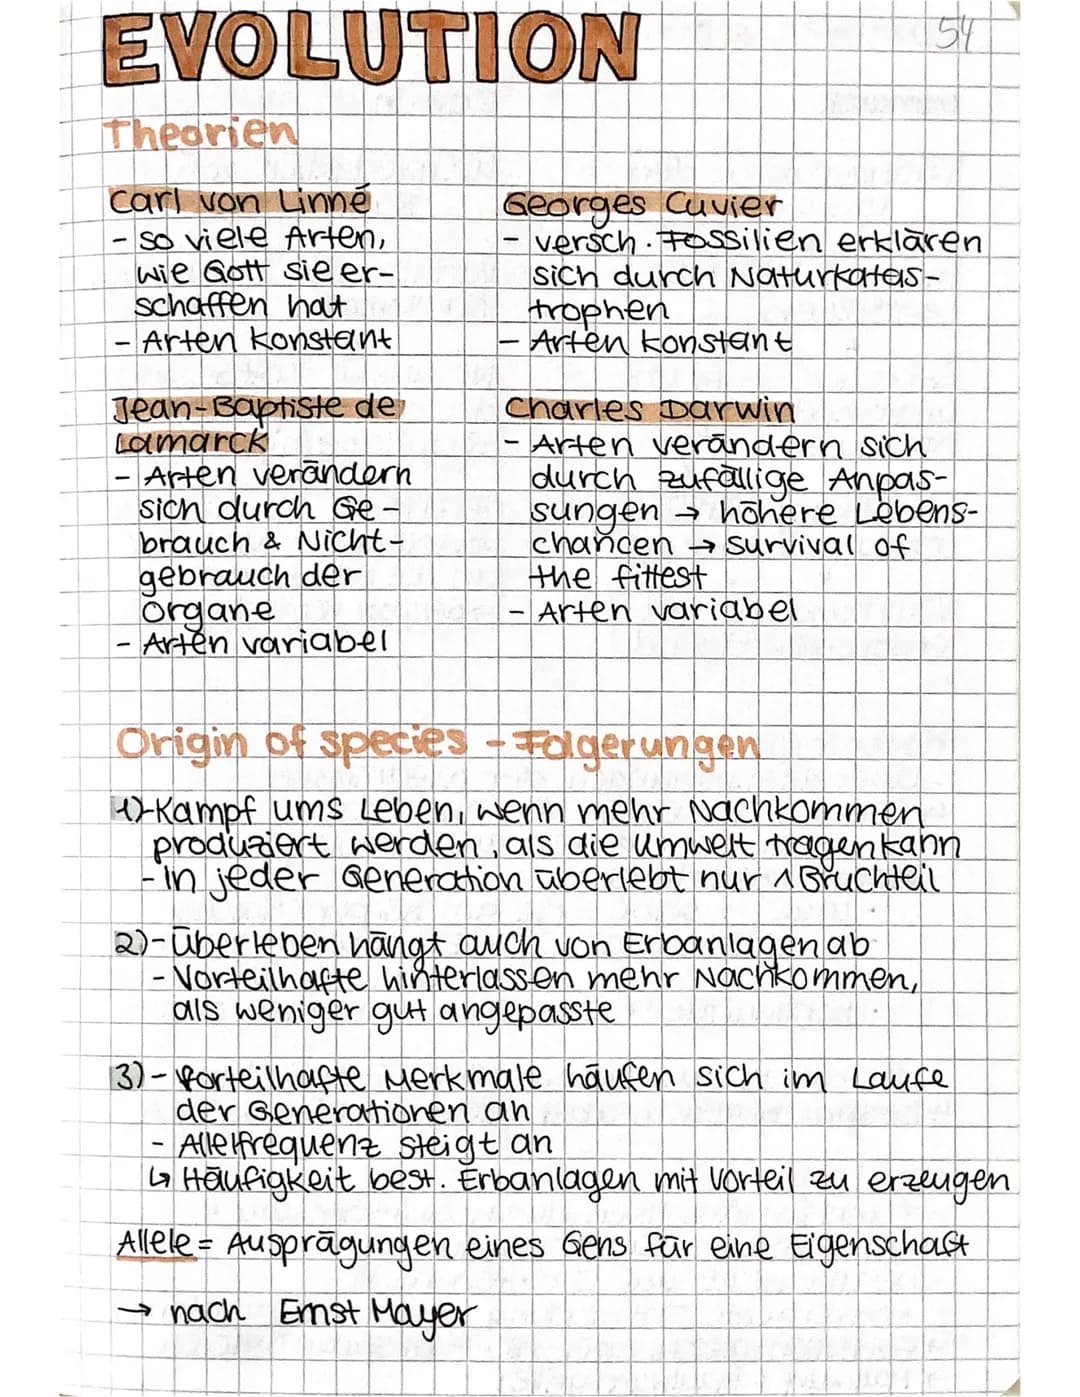 EVOLUTION
54
Theorien
Carl von Linné
- so viele Arten,
wie Gott sie er-
schaffen hat
- Arten konstant
Georges Cuvier
- versch. Fossilien erklären
sich durch Naturkatas-
trophen
- Arten konstant
Jean-Baptiste de
Lamarck
- Arten verändern
sich durch Ge-
brauch & Nicht-
gebrauch der
Organe
- Arten variabel
Charles Darwin
- Arten verändern sich
durch zufällige Anpas-
sungen → höhere Lebens-
chancen → survival of
the fittest
- Arten variabel
Origin of species - Folgerungen
1)-Kampf ums Leben, wenn mehr Nachkommen
produziert werden, als die Umwelt tragen kann
- in jeder Generation überlebt nur 1 Bruchteil
2)- Überleben hängt auch von Erbanlagen ab
- Vorteilhafte hinterlassen mehr Nachkommen,
als weniger gut angepasste
3)- Vorteilhafte Merkmale häufen sich im Laufe
der Generationen an
- Allelfrequenz steigt an
↳ Häufigkeit best. Erbanlagen mit Vorteil zu erzeugen
Allele = Ausprägungen eines Gens für eine Eigenschaft
→ nach Ernst Mayer